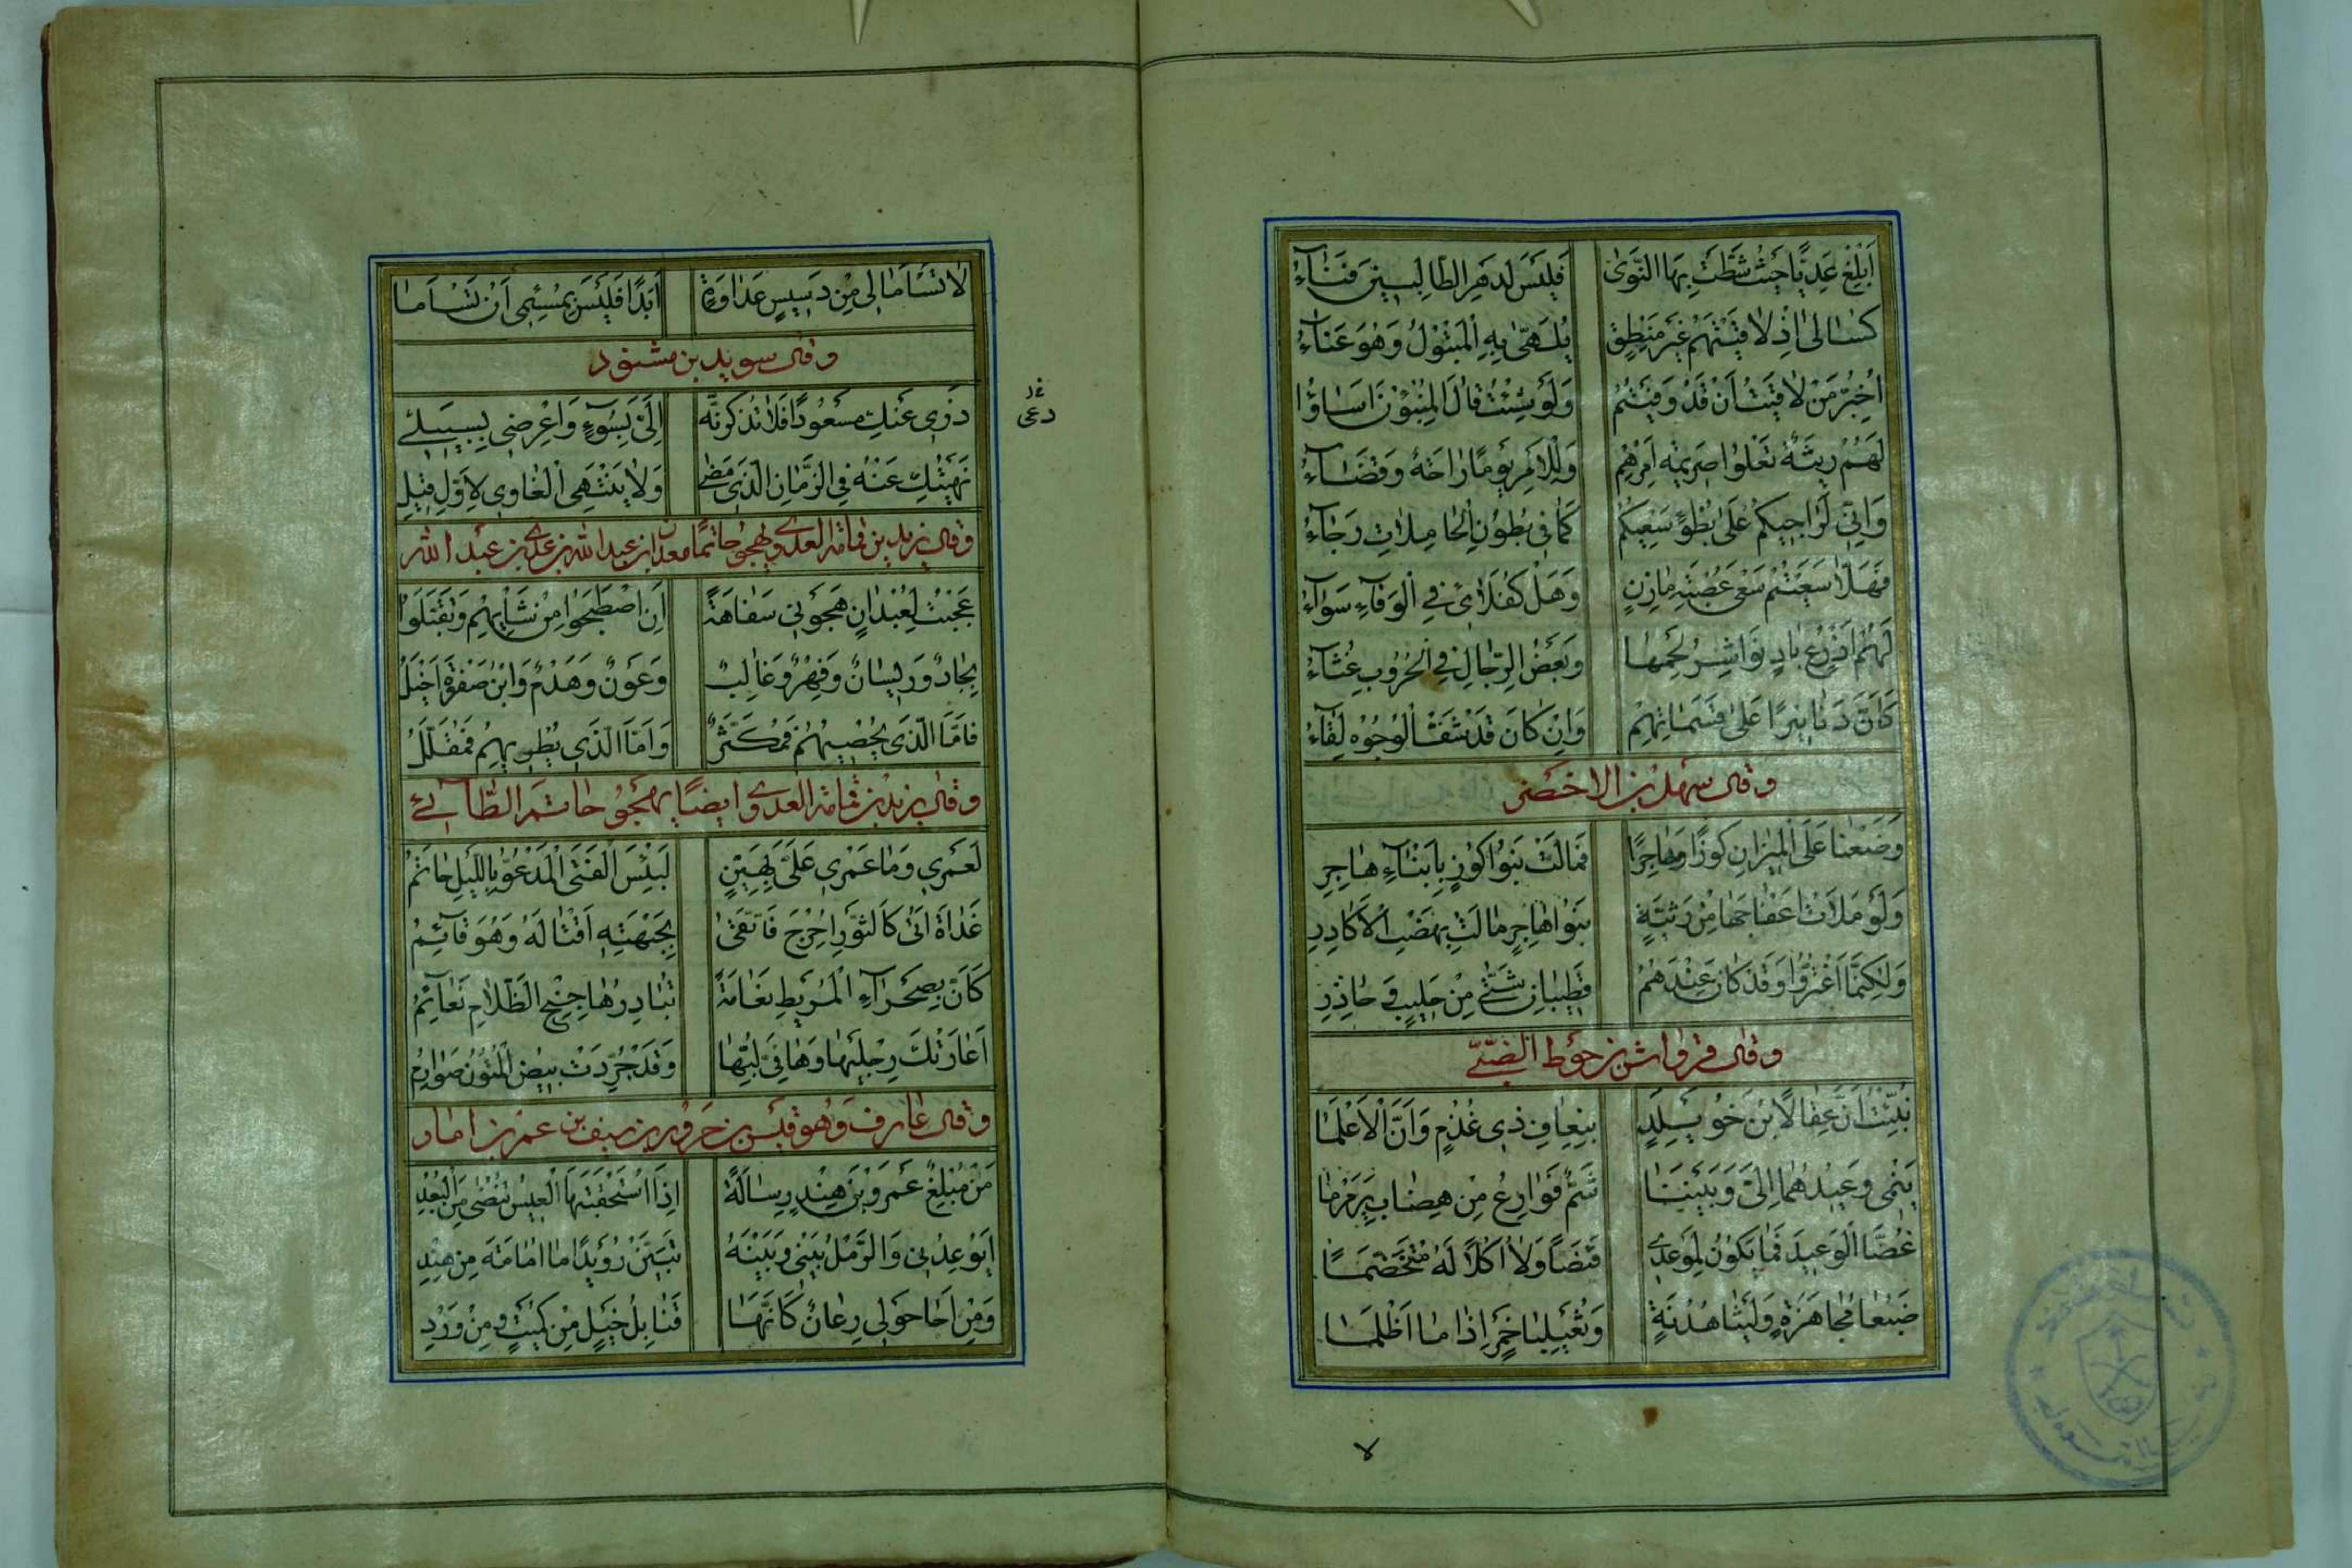 اَبْلِغْ عَدِيًّا حَيْثُ شَطَّتْ بِهَا النَّوٰى فَلَيْسَ لِدَهْرِ الطَّالِبِينَ فَنَآءُ
كَسَالٰى اِذَ لَاقَيْتَهُمْ غَيْرَ مَنْطِقٍ يُلَهّٰى بِهِ الْمَتْبُولُ وَهُوَ عَنَآءُ
اُخَبِّرُ مَنْ لَاقَيْتُ اَنْ قَدْ وَفَيْتُمُ وَلَوْ شِئْتُ قَالَ الْمُنْبِئُونَ اَسَاؤُا
لَهُمْ رِيثَةٌ تَعْلُوا صَرِيمَةَ اَمْرِهِمْ وَلِلْاَمْرِ يَوْمًا رَاحَةٌ وَقَضَآءُ
وَاِنِّي لَرَاجِيكُمْ عَلٰى بُطْوِ سَعْيِكُمْ كَمَا فِي بُطُونِ الْحَامِلَاتِ رَجَآءُ
فَهَلَّا سَعَيْتُمْ سَعْيَ عُصْبَةِ مَازِنٍ وَهَلْ كُفَلَائِي فِي الْوَفَآءِ سَوَآءُ
لَهُمْ اَذْرُعٌ بَادٍ نَوَاشِرُ لَحْمِهَا وَبَعْضُ الرِّجَالِ فِي الْحُرُوبِ غُثَآءُ
كَاَنَّ دَنَانِيرًا عَلٰى قَسَمَاتِهِمْ وَاِنْ كَانَ قَدْ شَفَّ الْوُجُوهَ لِقَآءُ
وقال سهل بن الاخضر
وَضَعْنَا عَلَى الْمِيزَانِ كُوزًا وَهَاجِرًا فَمَالَتْ بَنُوا كُوزٍ بِاَبْنَآءِ هَاجِرِ
وَلَوْ مَلَاَتْ اَعْفَاجَهَا مِنْ رَثِيَّةٍ بَنُوا هَاجِرٍ مَالَتْ بِهَضْبِ الْاَكَادِرِ
وَلٰكِنَّمَا اغْتَرُّوا وَقَدْ كَانَ عِنْدَهُمْ قَطِيبَانِ شَتّٰى مِنْ حَلِيبٍ وَ حَاذِرِ
وقال قرواش بن حوط الضّبّيّ
نُبِّئْتُ اَنَّ عِقَالًا بْنَ خُوَيْلِدٍ بِنِعَافِ ذِي غُذُمٍ وَاَنَّ الْاَعْلَمَا
يَنْمِي وَعِيدُهُمَا اِلَيَّ وَبَيْنَنَا شُمٌّ فَوَارِعُ مِنْ هِضَابِ يَرَمْرَمَا
غُضَّا الْوَعِيدَ فَمَا يَكُونُ لِمَوْعِدِي قَنَصًا وَلَا اُكَلًا لَهُ مُتَخَضَّمًا
ضَبُعَا مُجَاهَرَةٍ وَلَيْثَا هُدْنَةٍ وَثُعَيْلِبَا خَمَرٍ اِذَا مَا اَظْلَمَا
لا
لَا تَسْاَمَا لِي مِنْ دَبِيسِ عَدَاوَةٍ اَبَدًا فَلَيْسَ بِمُسْئِمِي اَنْ تَسْاَمَا
وقال سويد بن مشنود
ذَرِي عَنْكِ مَسْعُودًا فَلَا تَذْكُرِنَّهُ اِلَيَّ بِسُوءٍ وَاعْرِضِي لِسَبِيلِ
نَهَيْتُكِ عَنْهُ فِي الزَّمَانِ الَّذِي مَضٰى وَلَا يَنْتَهِي الْغَاوِي لِاَوَّلِ قِيلِ
وقال يزيد بن قنافة العدوي يهجو حاتما معدان بن عبد الله بن عدي بن عبد الله
عَجِبْتُ لِعُبْدَانٍ هَجَوْنِي سَفَاهَةً اَنِ اصْطَبَحُوا مِنْ شَائِهِمْ وَتَقَيَّلُوا
بِجَادٌ وَرَيْسَانٌ وَفِهْرٌ وَغَالِبٌ وَعَوْنٌ وَهَدْمٌ وَابْنُ صَفْوَةَ اَخْيَلُ
فَاَمَّا الَّذِي يُحْصِيهِمْ فَمُكَثِّرٌ وَاَمَّا الَّذِي يُطْرِيهِمْ فَمُقَلِّلُ
وقال يزيد بن قنافة العدوي ايضًا يهجو حاتم الطّائي
لَعَمْرِي وَمَا عَمْرِي عَلَيَّ بِهَيِّنٍ لَبِئْسَ الْفَتَى الْمَدْعُوُّ بِاللَّيْلِ حَاتِمُ
غَدَاةَ اَتٰى كَالثَّوْرِ اُحْرِجَ فَاتَّقٰى بِجَبْهَتِهِ اَقْتَالَهُ وَهُوَ قَآئِمُ
كَاَنَّ بِصَحْرَآءِ الْمُرَيْطِ نَعَامَةً تُبَادِرُهَا جِنْحَ الظَّلَامِ نَعَآئِمُ
اَعَارَتْكَ رِجْلَيْهَا وَهَافِيَ لُبِّهَا وَقَدْ جُرِّدَتْ بِيضُ الْمُتُونِ صَوَارِمُ
وقال عارف وهو قيس بن جروة بن سيف بن عمر بن امان
مَنْ مُبْلِغٌ عَمْرَو بْنَ هِنْدٍ رِسَالَةً اِذَا اسْتَحْقَبَتْهَا الْعِيسُ تُنْضٰى مِنَ الْبُعْدِ
اَيُوعِدُنِي وَالرَّمْلُ بَيْنِي وَبَيْنَهُ تَبَيَّنْ رُوَيْدًا مَا اُمَامَةُ مِنْ هِنْدِ
وَمِنْ اَجَا حَوْلِي رِعَانٌ كَاَنَّهَا قَنَابِلُ خَيْلٍ مِنْ كُمَيْتٍ وَمِنْ وَرْدِ